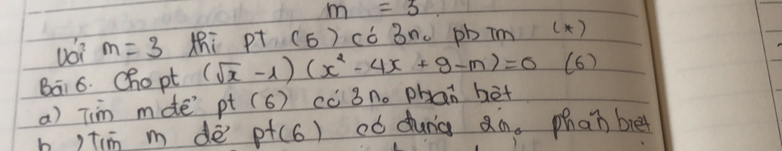 m = 3
Với m = 3 thì pt (5) có 3 n₀ pb Tm (*)
Bài 6. Cho pt (√x - 1)(x² - 4x + 9 - m) = 0 (6)
a) Tìm m để pt (6) có 3 n₀ phân bệt
b) Tìm m để pt(6) có đúng 2 n₀ phân biệt